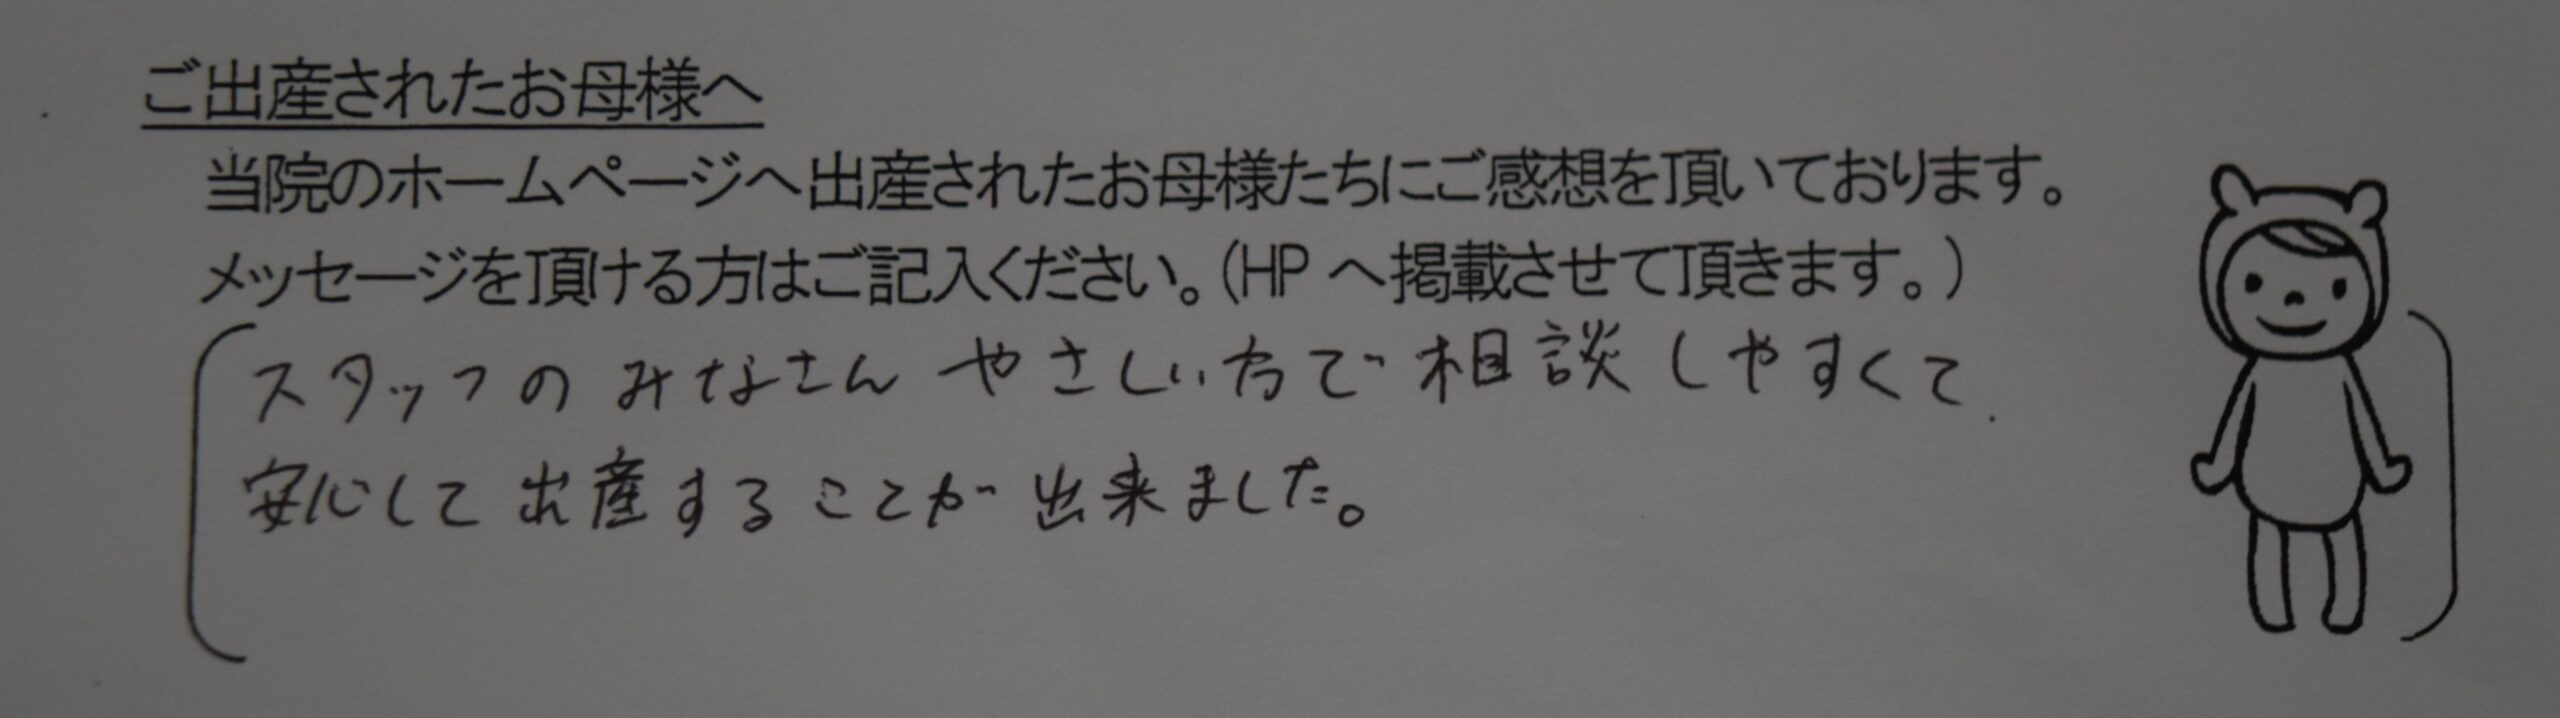 ご出産されたお母様へ
当院のホームページへ出産されたお母様たちにご感想を頂いております。
メッセージを頂ける方はご記入ください。(HP へ掲載させて頂きます。)
スタッフの みなさん やさしい方で 相談しやすくて
安心して 出産することが 出来ました。